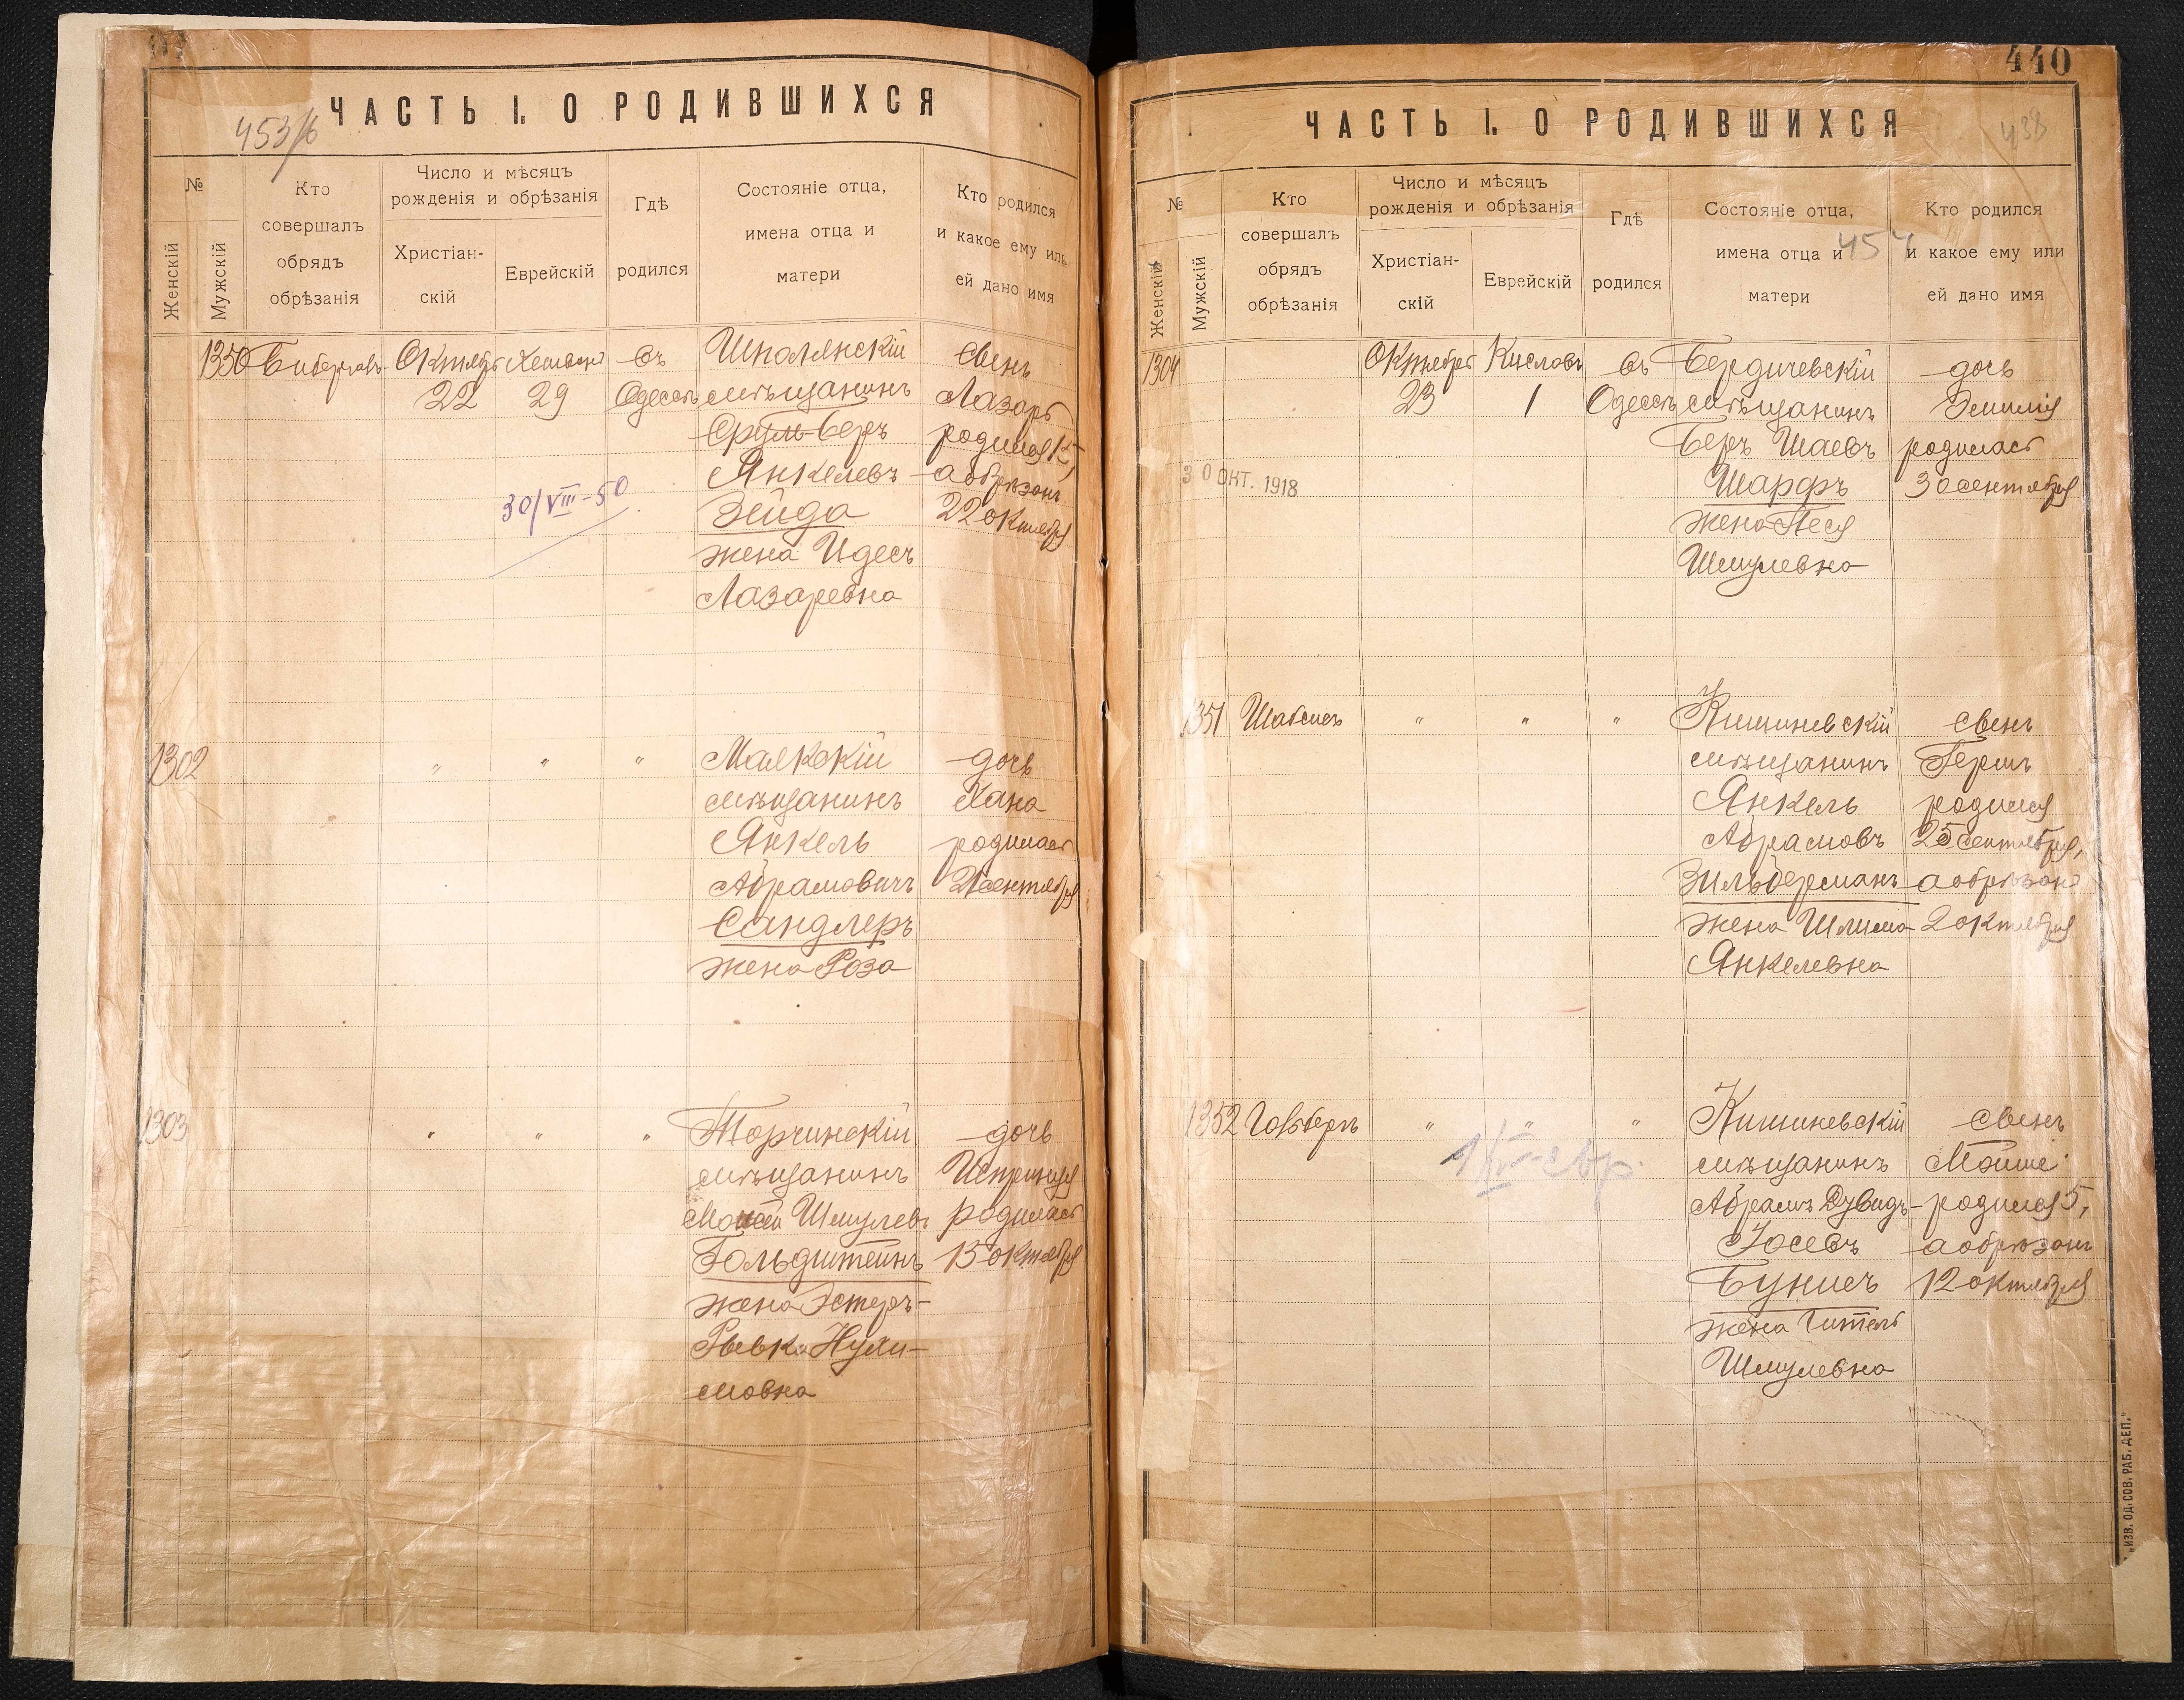 ЧАСТЬ I. О РОДИВШИХСЯ
453/6
№
Женскій
Мужскій
Кто
совершалъ
обрядъ
обрѣзанія
Число и мѣсяцъ
рожденія и обрѣзанія
Христіан-
скій
Еврейскій
Гдѣ
родился
Состояніе отца,
имена отца и
матери
Кто родился
и какое ему или
ей дано имя
1350
Октябрь
22
29
въ
Одессѣ
Шполянскій
мѣщанинъ
Сруль-Беръ
Янкелевъ
Зейда
жена Идесъ
Лазаревна
сынъ
Лазарь
родился 15,
а обрѣзанъ
22 октября
30/VIII-50
1302
" " "
Маякскій
мѣщанинъ
Янкель
Абрамовичъ
Сандлеръ
жена Роза
дочь
Хана
родилась
21 сентября
1303
" " "
Торчинскій
мѣщанинъ
Шмулевъ
Гольдштейнъ
жена Эстеръ-
Рывка Нухи-
мовна
дочь
родилась
15 октября
440
ЧАСТЬ I. О РОДИВШИХСЯ
438
454
№
Женскій
Мужскій
Кто
совершалъ
обрядъ
обрѣзанія
Число и мѣсяцъ
рожденія и обрѣзанія
Христіан-
скій
Еврейскій
Гдѣ
родился
Состояніе отца,
имена отца и
матери
Кто родился
и какое ему или
ей дано имя
1304
Октябрь
23
Кислевъ
1
въ
Одессѣ
Бердичевскій
мѣщанинъ
Беръ Шаевъ
Шарфъ
жена Песя
Шмулевна
дочь
Эмилія
родилась
30 сентября
30 ОКТ. 1918
1351
" " "
Кишиневскій
мѣщанинъ
Янкель
Абрамовъ
Зильберманъ
жена Шлима
Янкелевна
сынъ
Гершъ
родился
25 сентября,
а обрѣзанъ
2 октября
1352
" " "
Кишиневскій
мѣщанинъ
Абрамъ Дувидъ-
Іосевъ
Буничъ
жена Гитель
Шмулевна
сынъ
Мойше
родился 5,
а обрѣзанъ
12 октября
„ИЗВ. ОД. СОВ. РАБ. ДЕП."